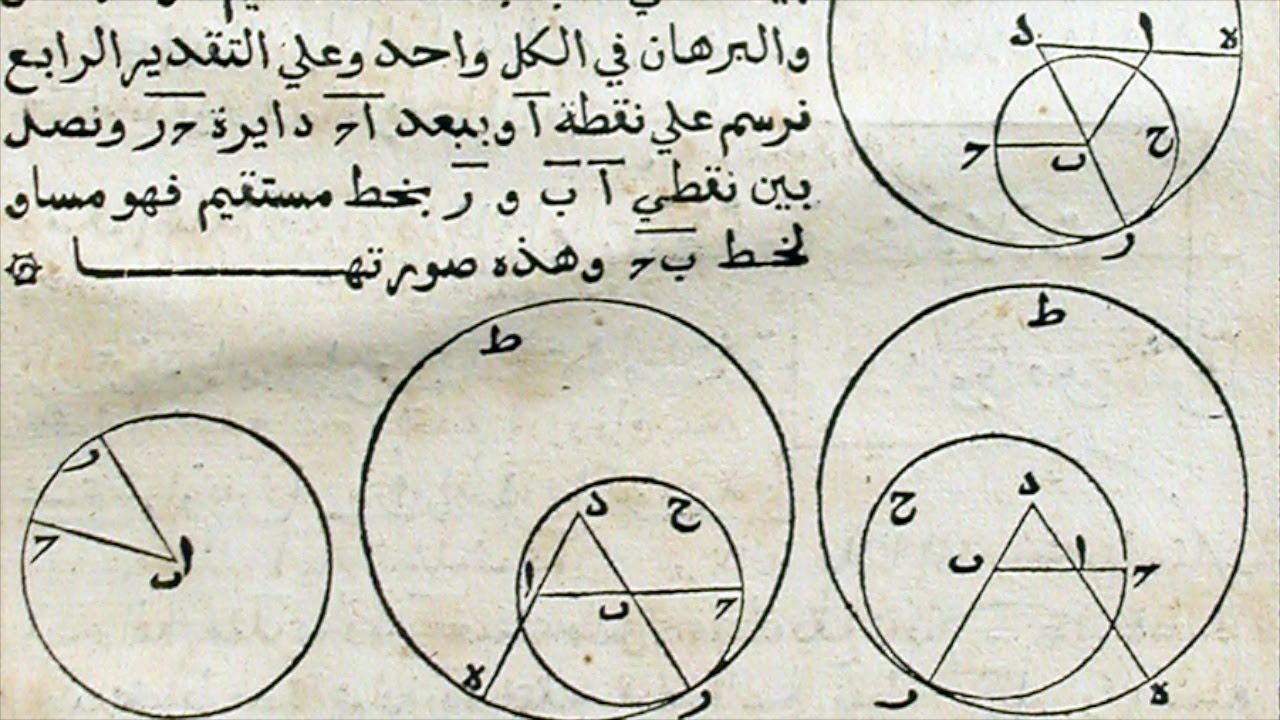 والبرهان في الكل واحد وعلي التقدير الرابع
فرسم علي نقطة آ وببعد آح دايرة حر ونصل
بين نقطي آ ب و ر بخط مستقيم فهو مساو
لخط ب ح وهذه صورتها
د ا ه
ح ب ح
ر
ط
د ح
ا ب ح
ه ر
ط
د
ح ب ا ح
ر ه
ر
ح
اب